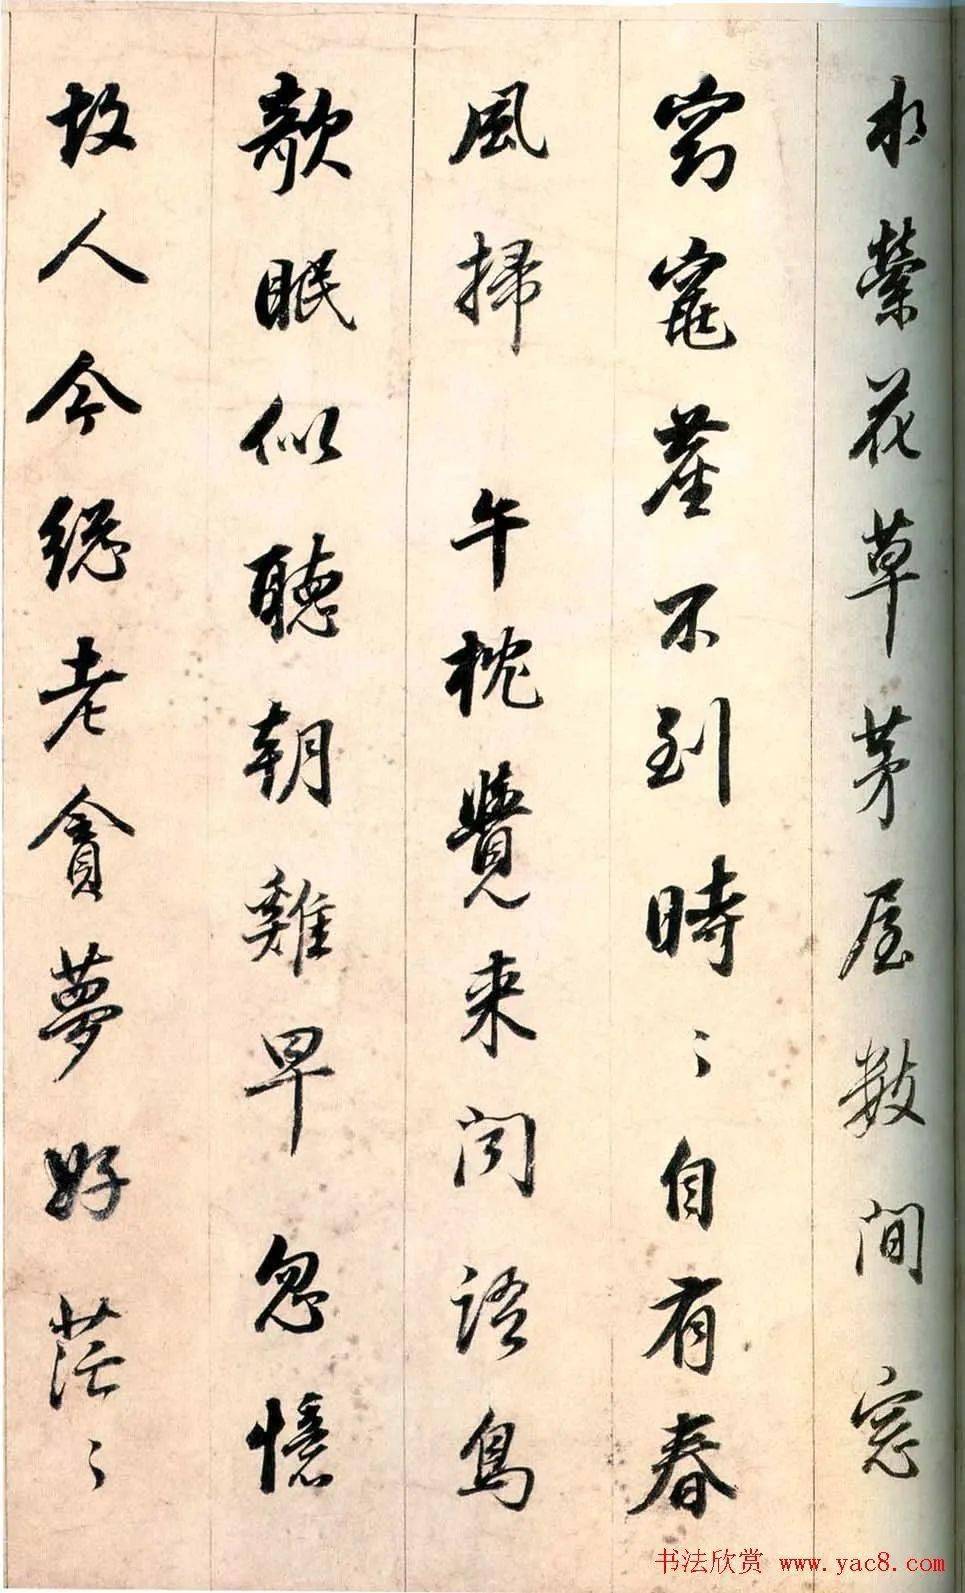 水縈花草茅屋數間窓
窈窕塵不到時〻自有春
風掃 午枕覺来聞語鳥
欹眠似聽朝雞早忽憶
故人今緫老貪夢好茫〻
书法欣赏 www.yac8.com